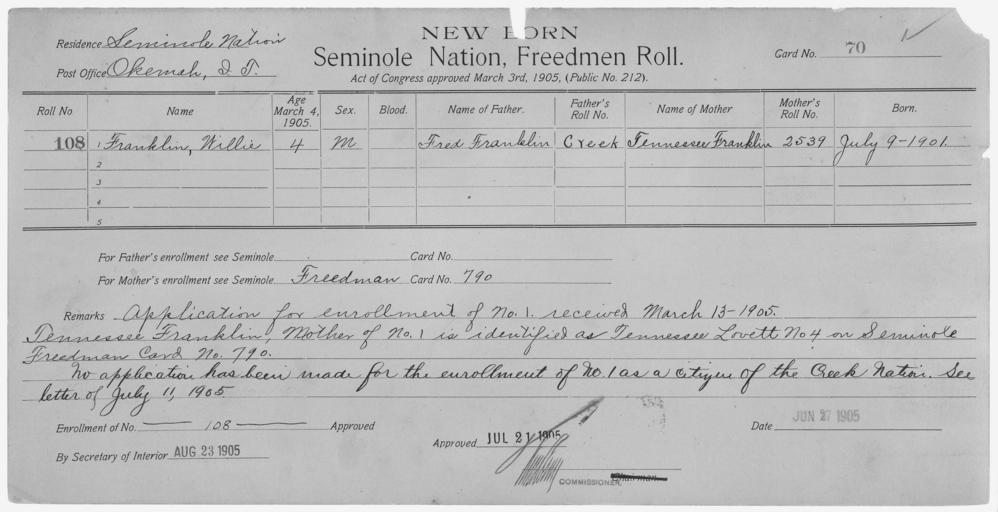 NEW BORN
Residence Seminole Nation
Seminole Nation, Freedmen Roll.
Card No. 70
Post Office Okemah, I. T.
Act of Congress approved March 3rd, 1905, (Public No. 212).
Roll No Name Age March 4, 1905. Sex. Blood. Name of Father. Father's Roll No. Name of Mother Mother's Roll No. Born.
108 1 Franklin, Willie 4 M Fred Franklin Creek Tennessee Franklin 2539 July 9-1901.
2
3
4
5
For Father's enrollment see Seminole Card No.
For Mother's enrollment see Seminole Freedman Card No. 790
Remarks Application for enrollment of No. 1. received March 13-1905.
Tennessee Franklin, Mother of No. 1 is identified as Tennessee Lovett No 4 on Seminole
Freedman Card No. 790.
No application has been made for the enrollment of No. 1 as a citizen of the Creek Nation. See
letter of July 11, 1905
Enrollment of No. 108 Approved
Date JUN 27 1905
Approved JUL 21 1905
By Secretary of Interior AUG 23 1905
COMMISSIONER. Chairman.